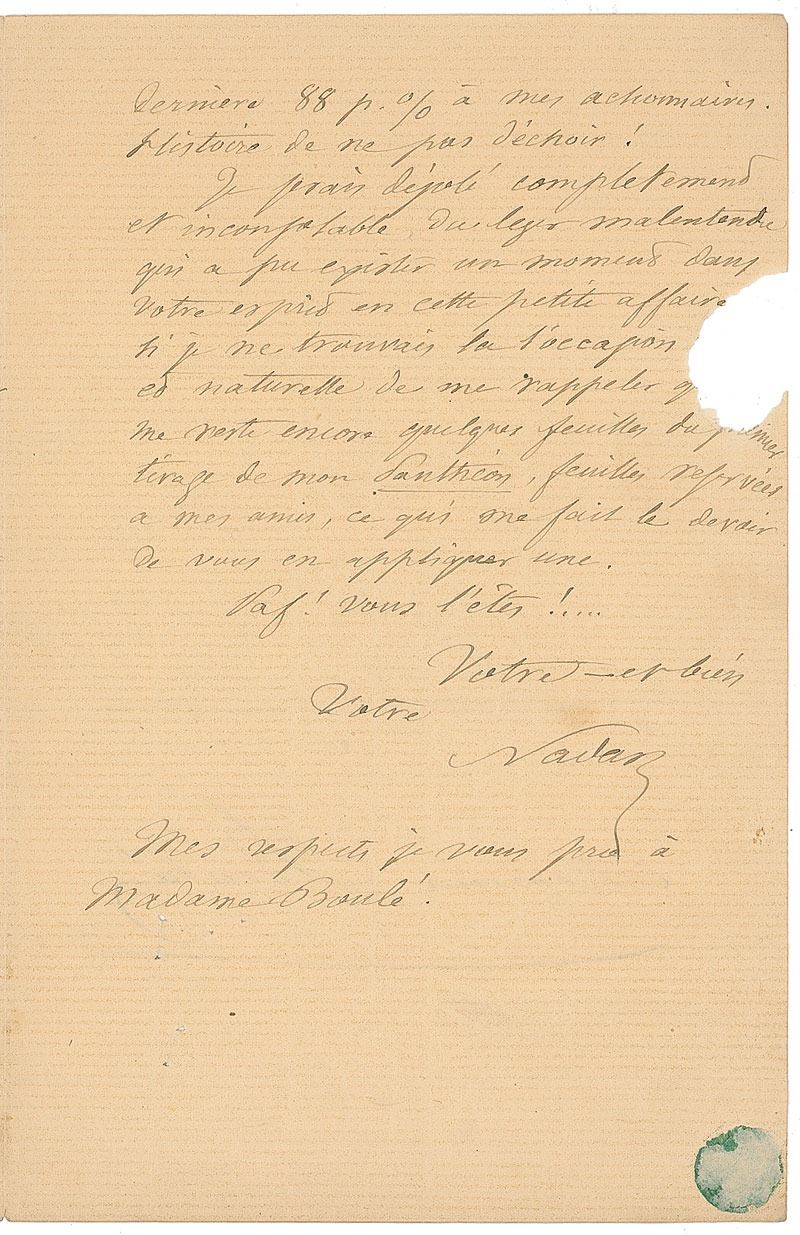 Dernière 88 p. % à mes actionnaires.
Histoire de ne pas déchoir !
Je serais désolé completement
et inconsolable du leger malentendu
qui a pu exister un moment dans
votre esprit en cette petite affaire
si je ne trouvais la l'occasion
et naturelle de me rappeler q
me reste encore quelques feuilles du premier
tirage de mon Panthéon, feuilles reservées
a mes amis, ce qui me fait le devoir
de vous en appliquer une.
Paf ! vous l'êtes !....
Votre — et bien
Votre
Nadar
Mes respects je vous prie à
Madame Boulé.